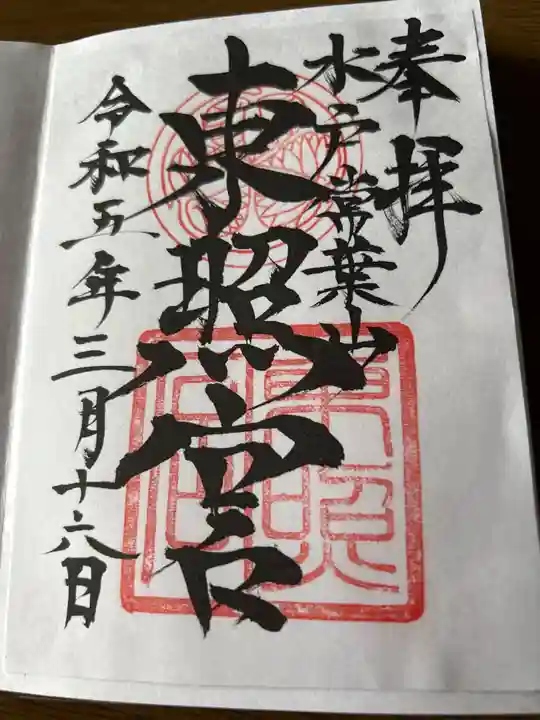 奉拝
水戸常葉山
東照宮
令和五年三月十六日
東照宮印